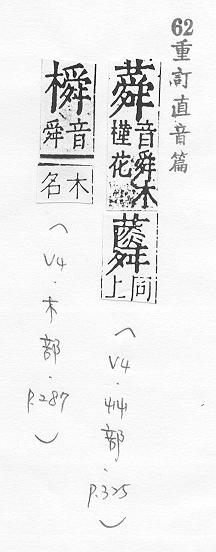 62重訂直音篇
蕣音舜木槿花䕭同上
(V4.艸部.P.325)
橓音舜木名
(V4.木部.P.287)